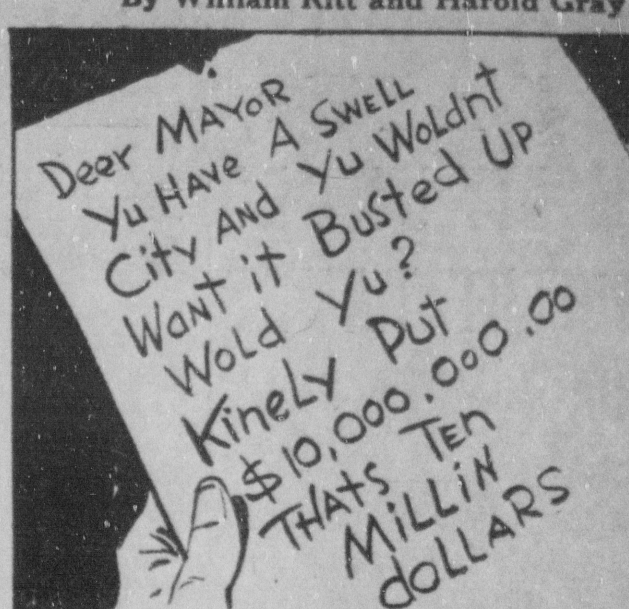 By William Ritt and Harold Gray
Deer MAYOR
Yu HAVe A SWELL
City AND Yu WoLdnt
WANT it Busted UP
WoLd Yu?
KineLy Put
$10,000,000.00
THAts Ten
MiLLiN
doLLARS